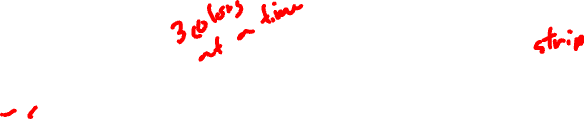 3 colors
at a time
strip